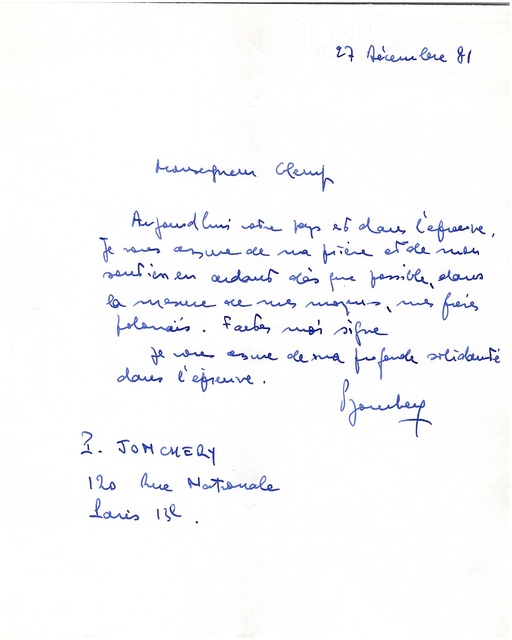 27 Décembre 81
Monseigneur Glemp
Aujourd'hui votre pays est dans l'épreuve.
Je vous assure de ma prière et de mon
soutien en aidant dès que possible, dans
la mesure de mes moyens, mes frères
polonais. Faites moi signe
Je vous assure de ma profonde solidarité
dans l'épreuve.
I. JONCHERY
120 Rue Nationale
Paris 13e.